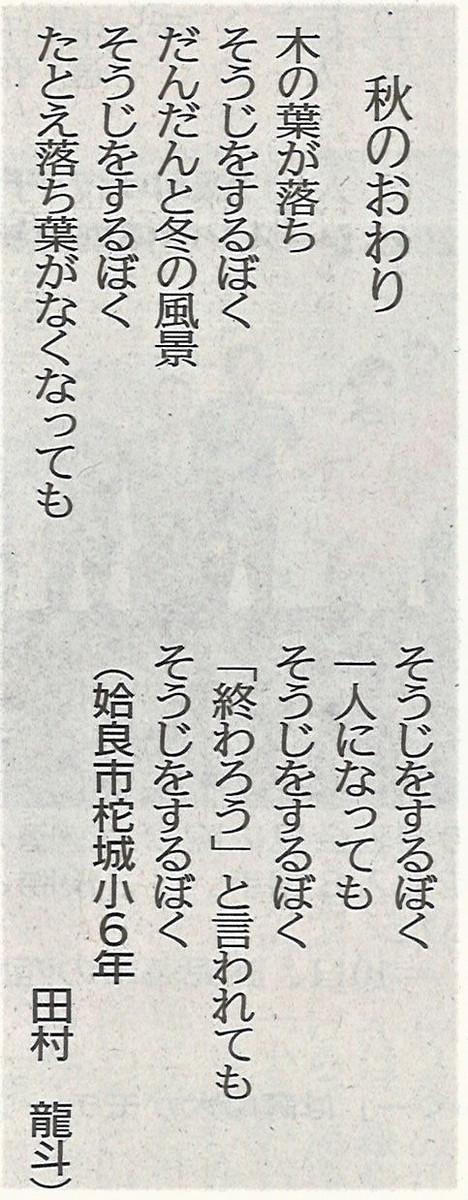 秋のおわり
木の葉が落ち
そうじをするぼく
だんだんと冬の風景
そうじをするぼく
たとえ落ち葉がなくなっても
そうじをするぼく
一人になっても
そうじをするぼく
「終わろう」と言われても
そうじをするぼく
(姶良市柁城小6年
田村 龍斗)